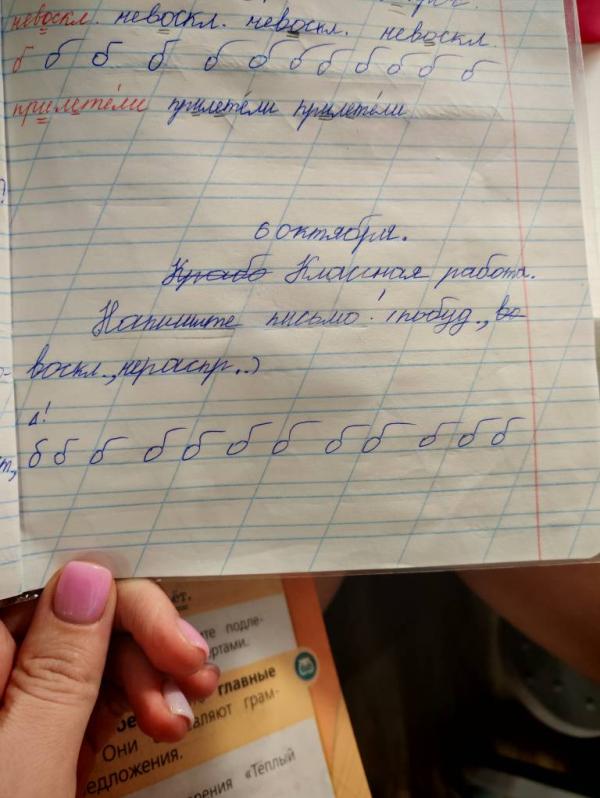 невоскл. невоскл. невоскл. невоскл.
б б б б б б б б б б б б
прилете́ли прилете́ли прилете́ли
6 октября.
Крабо Классная работа.
Напишите письмо! (побуд., во
воскл., нераспр..)
д!
б б б б б б б б б б б б
ёт.
те подле-
ртами.
главные
Они
ляют грам-
едложения.
рения «Тёплый